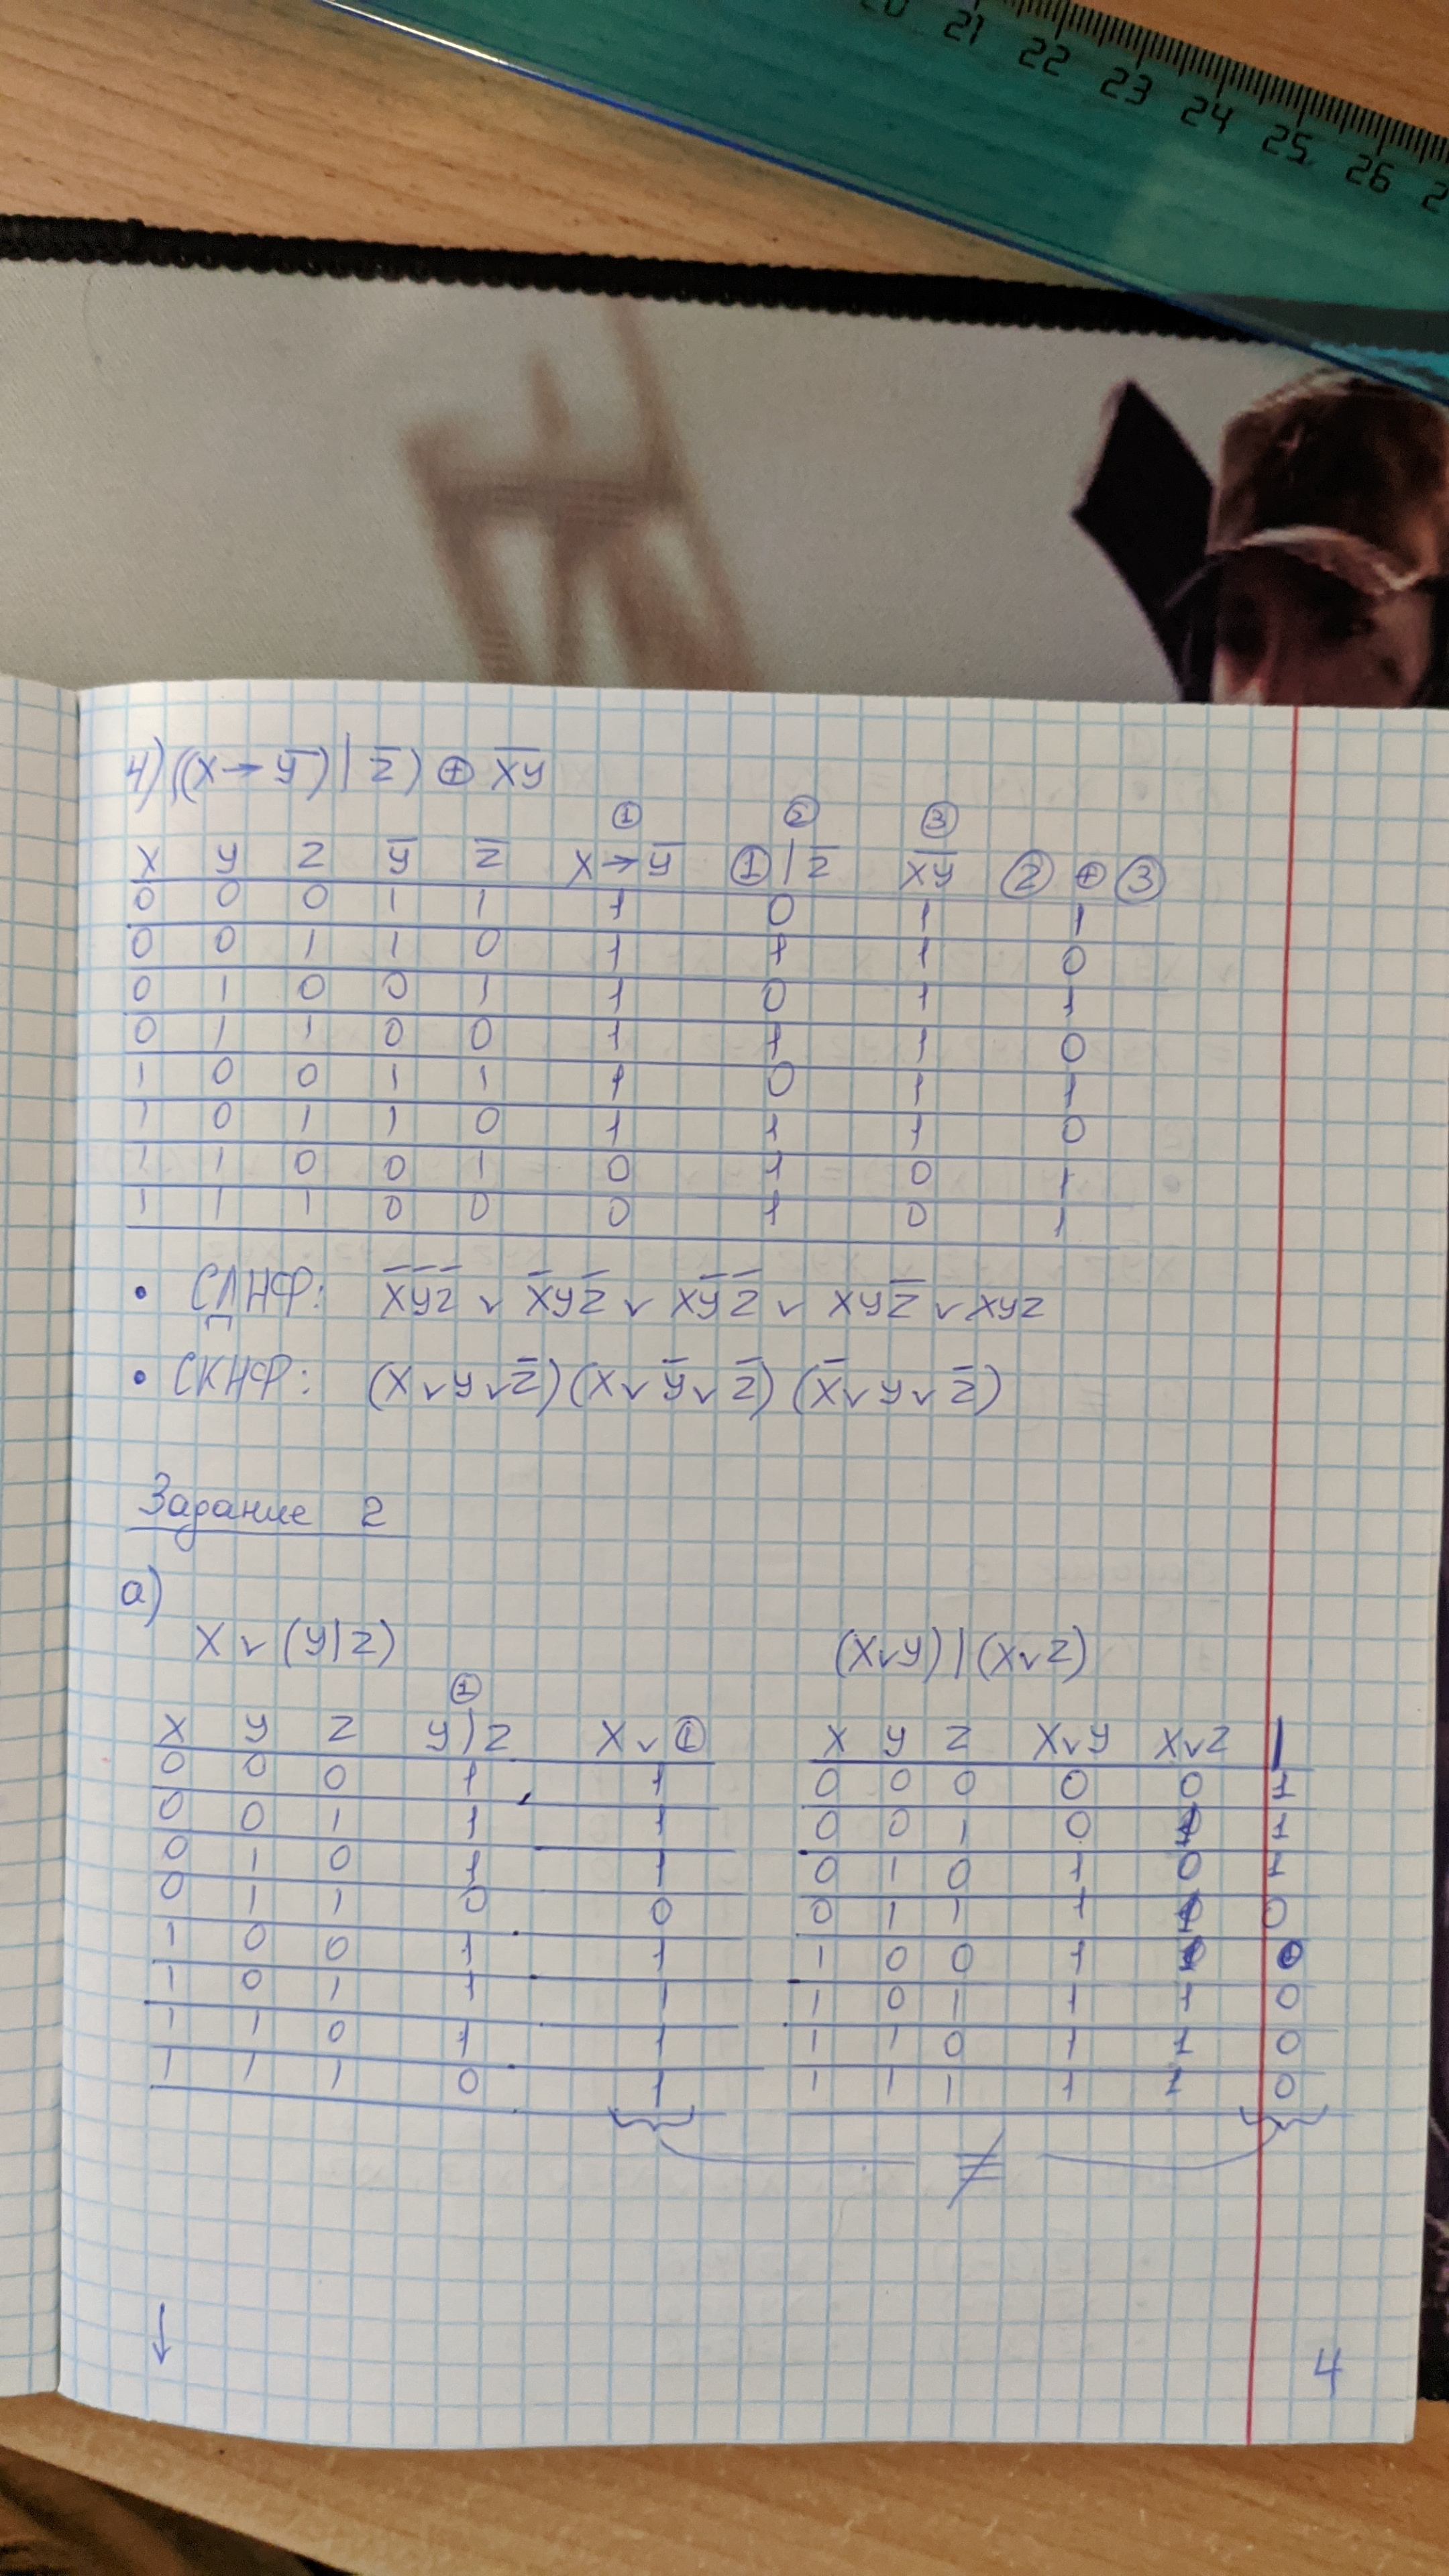 20 21 22 23 24 25 26 2
4) ((x→y̅)|z̅) ⊕ x̅y̅
① ② ③
x y z y̅ z̅ x→y̅ ①|z̅ x̅y̅ ② ⊕ ③
0 0 0 1 1 1 0 1 1
0 0 1 1 0 1 1 1 0
0 1 0 0 1 1 0 1 1
0 1 1 0 0 1 1 1 0
1 0 0 1 1 1 0 1 1
1 0 1 1 0 1 1 1 0
1 1 0 0 1 0 1 0 1
1 1 1 0 0 0 1 0 1
• СДНФ: x̅y̅z̅ ∨ x̅yz̅ ∨ xy̅z̅ ∨ xyz̅ ∨ xyz
• СКНФ: (x∨y∨z̅)(x∨y̅∨z̅)(x̅∨y∨z̅)
Задание 2
а)
x∨(y|z) (x∨y)|(x∨z)
①
x y z y|z x∨① x y z x∨y x∨z |
0 0 0 1 1 0 0 0 0 0 1
0 0 1 1 1 0 0 1 0 1 1
0 1 0 1 1 0 1 0 1 0 1
0 1 1 0 0 0 1 1 1 1 0
1 0 0 1 1 1 0 0 1 1 0
1 0 1 1 1 1 0 1 1 1 0
1 1 0 1 1 1 1 0 1 1 0
1 1 1 0 1 1 1 1 1 1 0
≢
↓
4